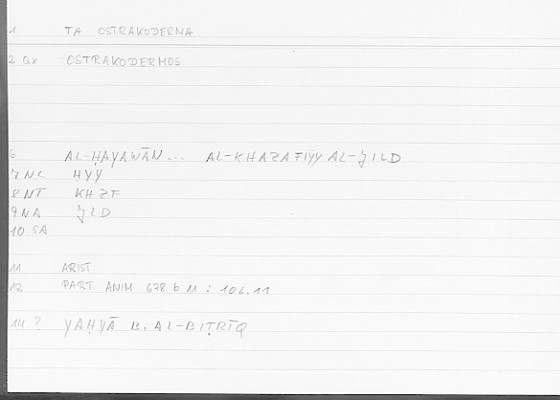 1 TA OSTRAKODERMA
2 GX OSTRAKODERMOS
6 AL-ḤAYAWĀN... AL-KHAZAFIYY AL-ǦILD
7 NC ḤYY
8 NT KHZF
9 NA ǦLD
10 SA
11 ARIST
12 PART ANIM 678 b 11 : 106.11
14 ? YAḤYĀ B. AL-BIṬRĪQ